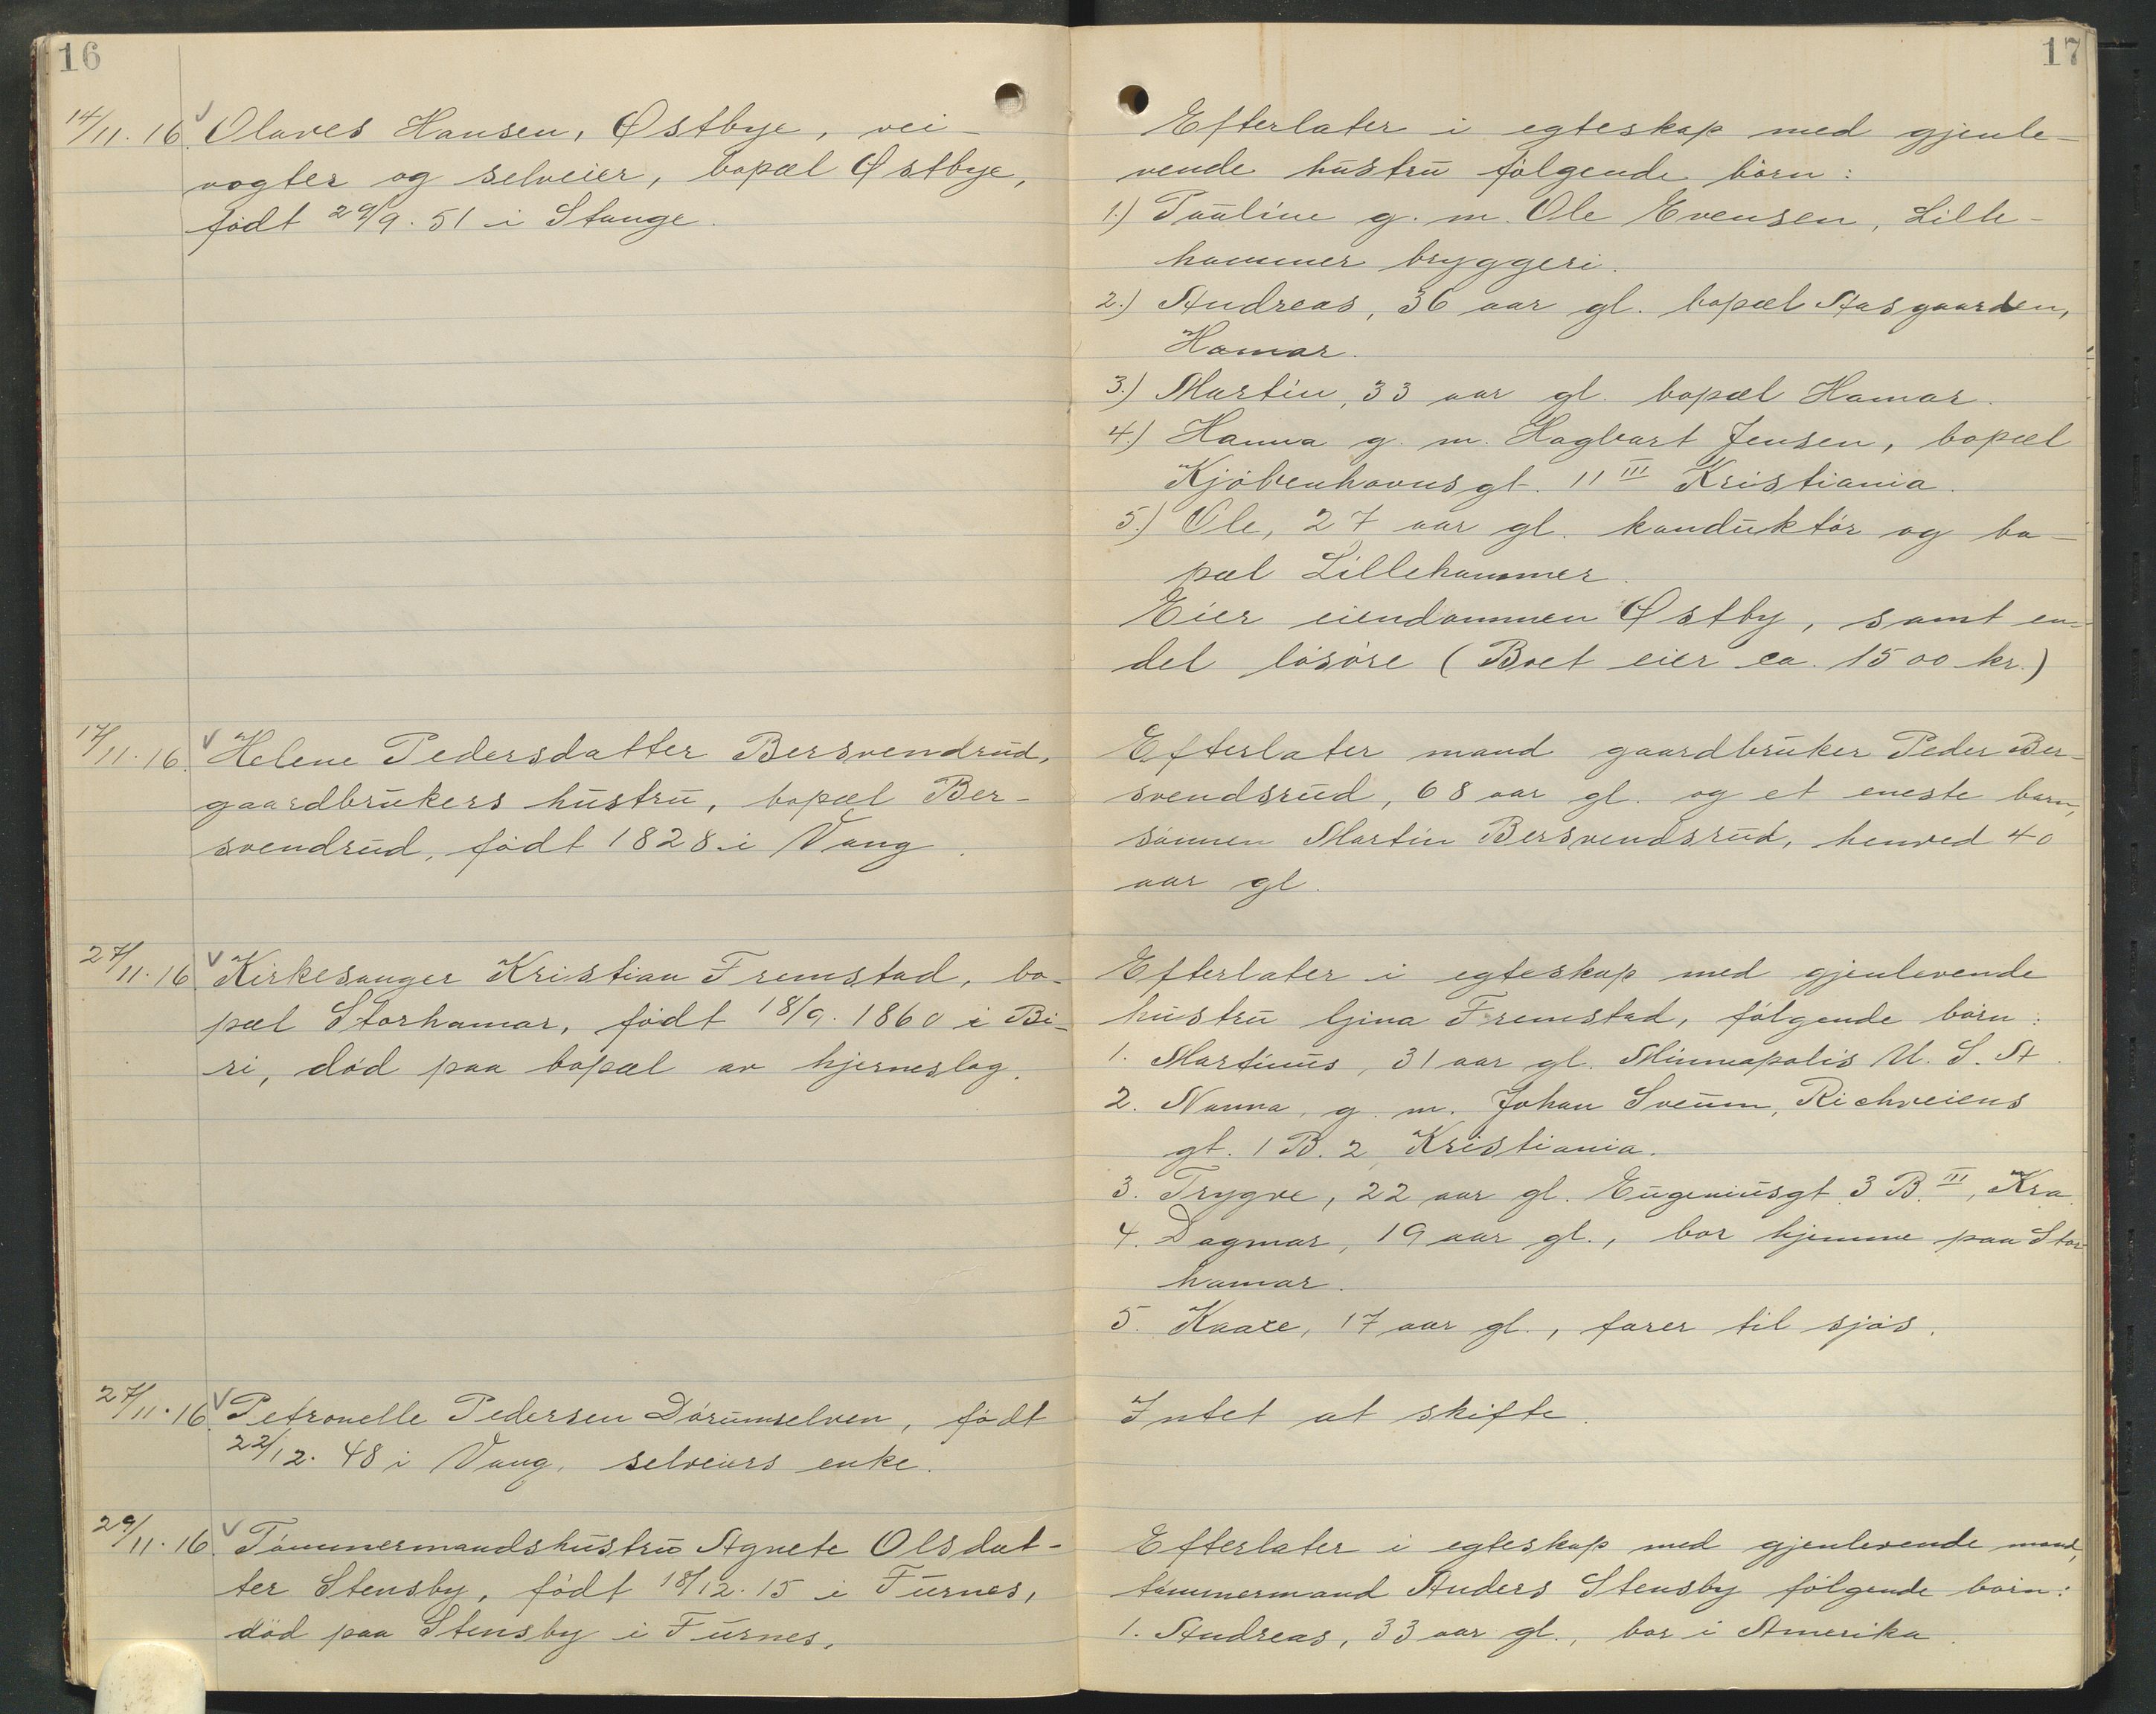 16
14/11. 16. Olaves Hansen, Østbye, vei-
vogter og selveier, bopæl Østbye,
født 29/9. 51 i Stange.
17/11. 16. Helene Pedersdatter Bersvendrud,
gaardbrukers hustru, bopæl Ber-
svendrud, født 1828 i Vang.
27/11. 16 Kirkesanger Kristian Fremstad, bo-
pæl Storhamar, født 18/9. 1860 i Bi-
ri, død paa bopæl av hjerneslag.
27/11. 16. Petronelle Pedersen Dørumselven, født
22/12. 48 i Vang, selveiers enke.
29/11. 16. Tømmermandshustru Agnete Olsdat-
ter Stensby, født 18/12. 15 i Furnes,
død paa Stensby i Furnes.
17
Efterlater i egteskap med gjenle-
vende hustru følgende børn:
1.) Pauline g. m. Ole Evensen, Lille-
hammer bryggeri.
2.) Andreas, 36 aar gl. bopæl Aasgaarden,
Hamar.
3.) Martin, 33 aar gl. bopæl Hamar.
4.) Hanna g. m. Hagbart Jensen, bopæl
Kjøbenhavnsgt. 11 III Kristiania.
5.) Ole, 27 aar gl. konduktør og bo-
pæl Lillehammer.
Eier eiendommen Østby, samt en-
del løsøre (Boet eier ca. 1500 kr.)
Efterlater mand gaardbruker Peder Ber-
svendsrud, 68 aar gl. og et eneste barn,
sønnen Martin Bersvendsrud, henved 40
aar gl.
Efterlater i egteskap med gjenlevende
hustru Gina Fremstad, følgende børn:
1. Martinus, 31 aar gl. Minneapolis U. S. A.
2. Nanna, g. m. Johan Sveum, Richveiens
gt. 1 B. 2, Kristiania.
3. Trygve, 22 aar gl. Eugeniusgt 3 B. III, Kra.
4. Dagmar, 19 aar gl., bor hjemme paa Stor-
hamar.
5. Kaare, 17 aar gl., farer til sjøs.
Intet at skifte.
Efterlater i egteskap med gjenlevende mand,
tømmermand Anders Stensby følgende børn:
1. Andreas, 33 aar gl., bor i Amerika.